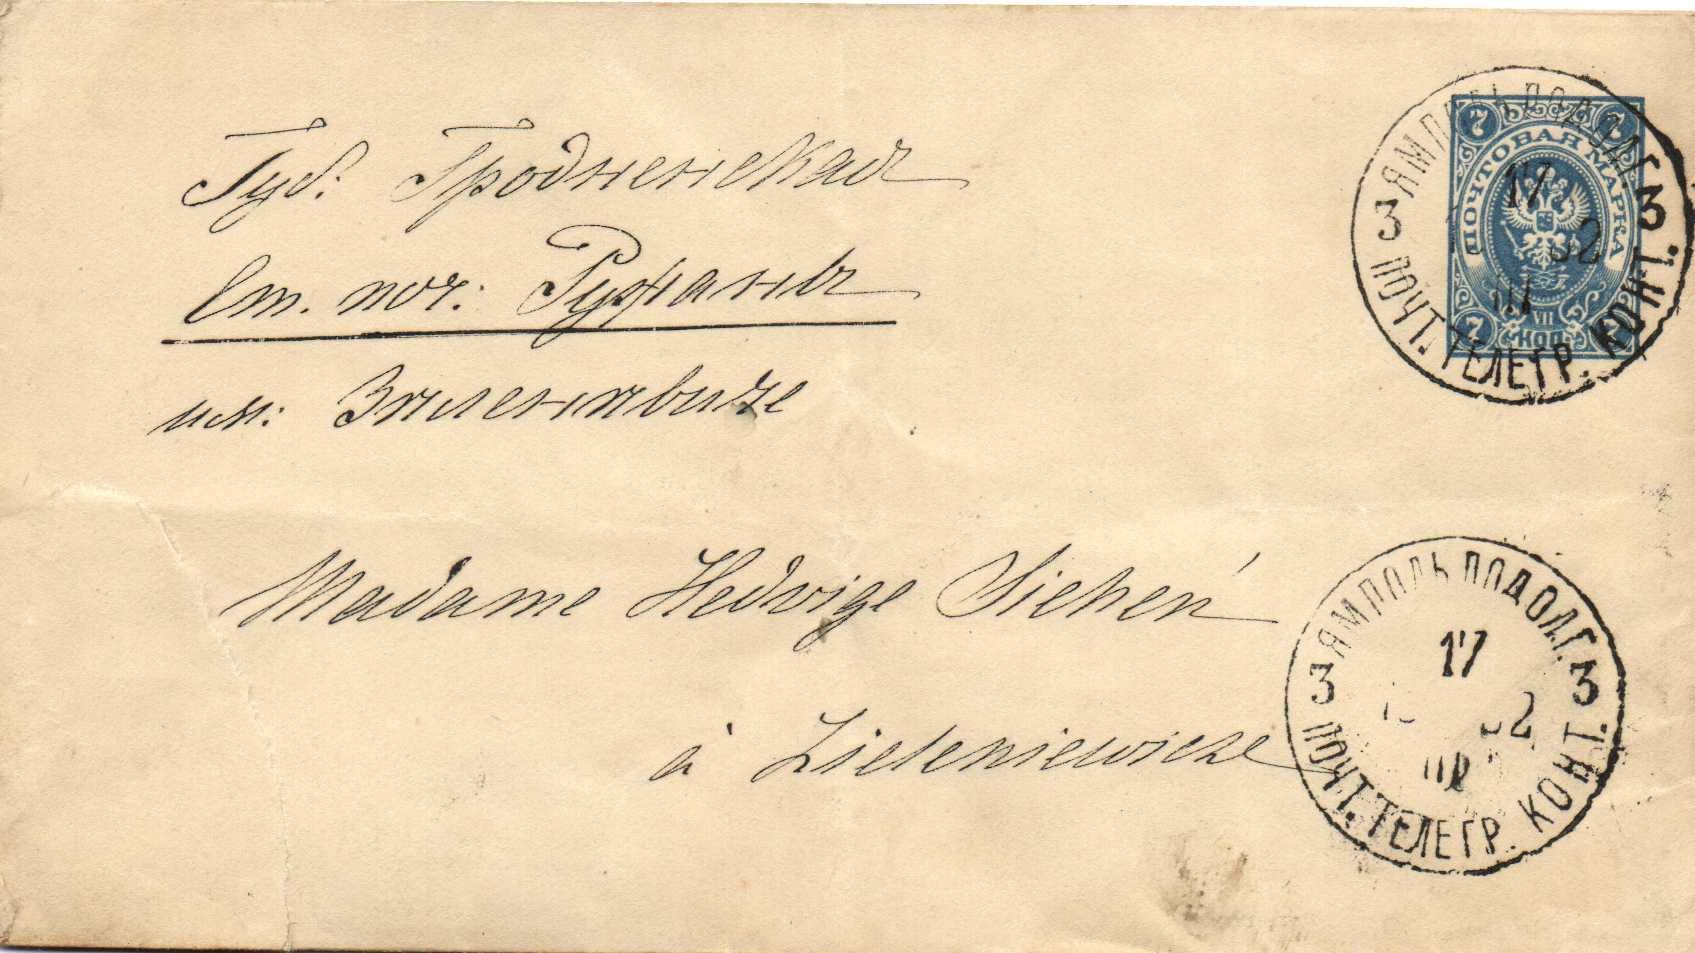 Губ: Гродненская
Ст. поч: Ружаны
им: Зеленевиче
Madame Hedvige
à Zieleniewicze
7 7
ПОЧТОВАЯ МАРКА
7 КОП 7
ЯМПОЛЬ ПОДОЛ.Г.
3 17 3
ПОЧТ. ТЕЛЕГР. КОНТ.
ЯМПОЛЬ ПОДОЛ.Г.
17
3 3
III
ПОЧТ. ТЕЛЕГР. КОНТ.